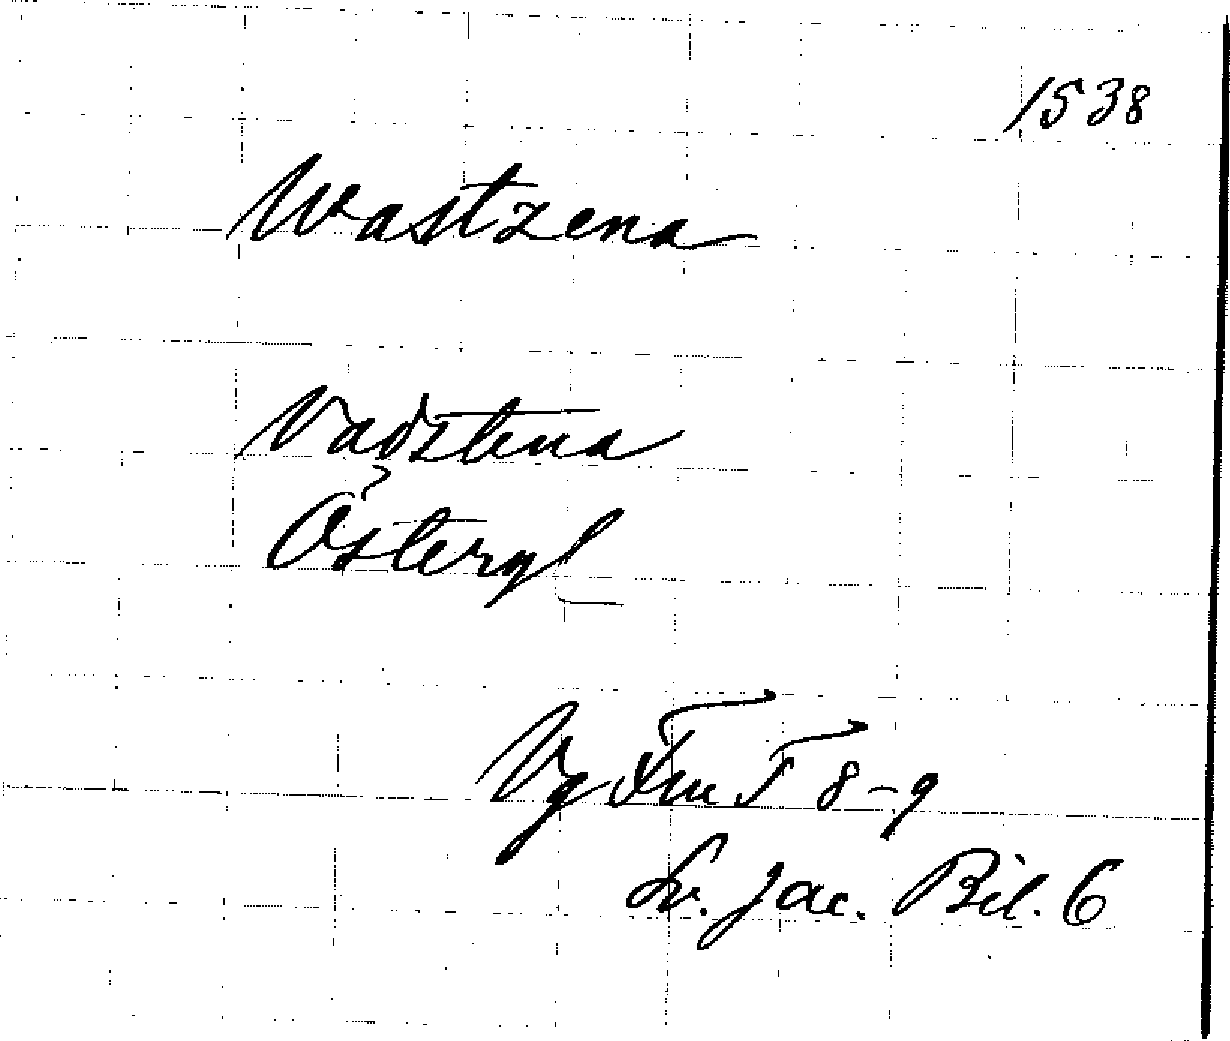 1538
Wastzena
Vadstena
Östergl
Vg Fm T 8-9
Sv. Jac. Bil. 6